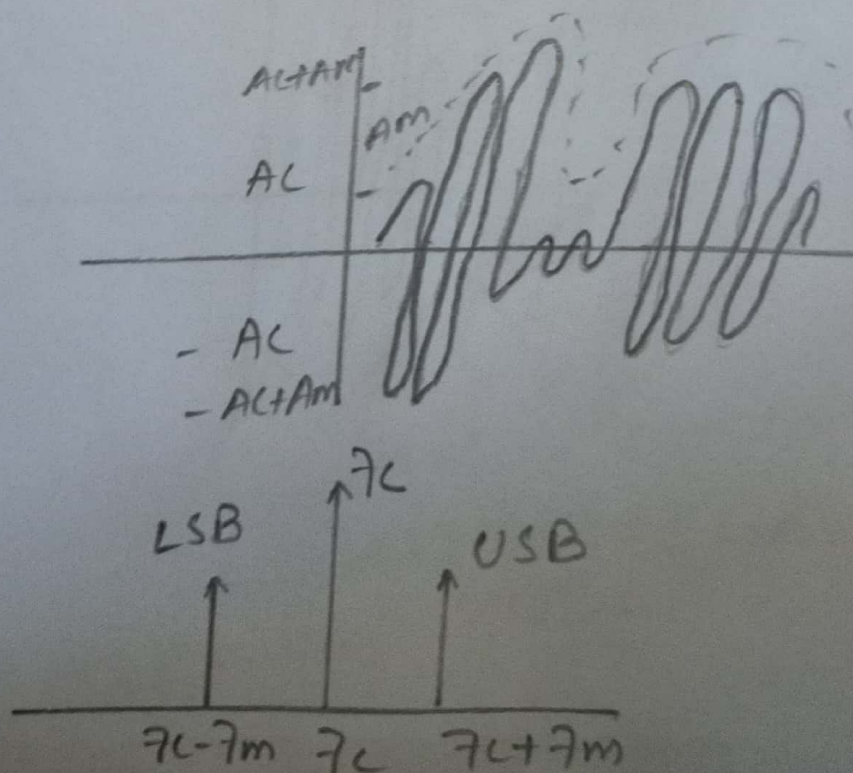 AC+Am
Am
AC
- AC
- AC+Am
fc
LSB
USB
fc-fm fc fc+fm